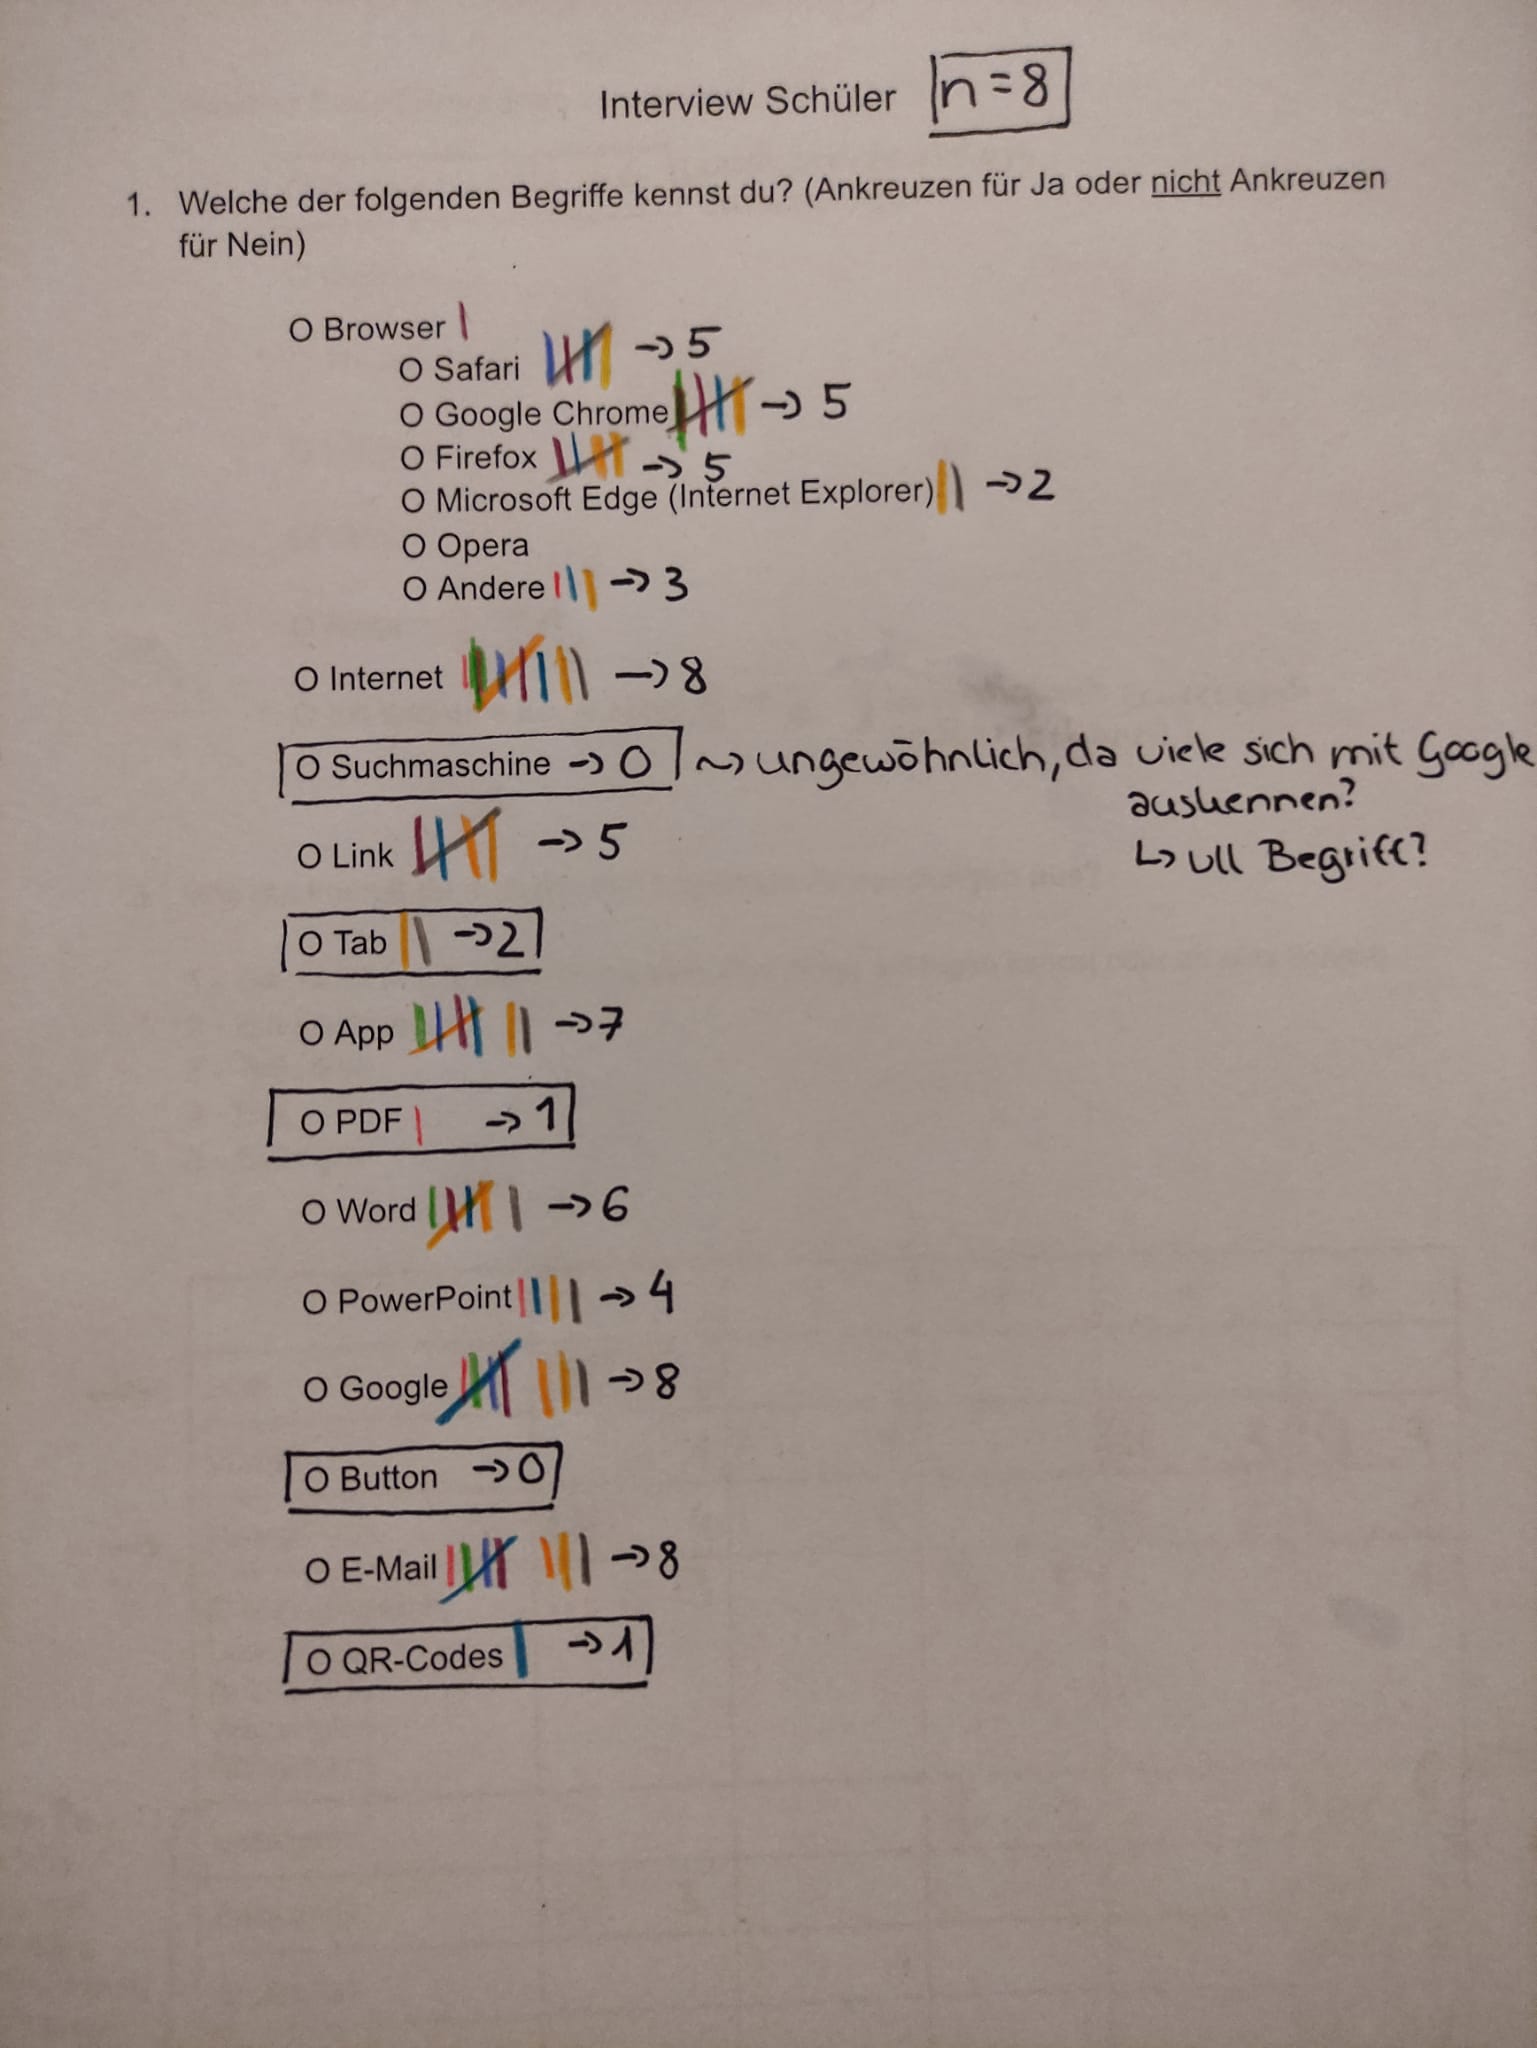 Interview Schüler n=8
1. Welche der folgenden Begriffe kennst du? (Ankreuzen für Ja oder nicht Ankreuzen
für Nein)
O Browser |
O Safari → 5
O Google Chrome → 5
O Firefox → 5
O Microsoft Edge (Internet Explorer) || → 2
O Opera
O Andere ||| → 3
O Internet → 8
O Suchmaschine → 0 ~> ungewöhnlich, da viele sich mit Google
auskennen?
↳ vll Begriff?
O Link → 5
O Tab || → 2
O App → 7
O PDF | → 1
O Word → 6
O PowerPoint |||| → 4
O Google → 8
O Button → 0
O E-Mail → 8
O QR-Codes | → 1